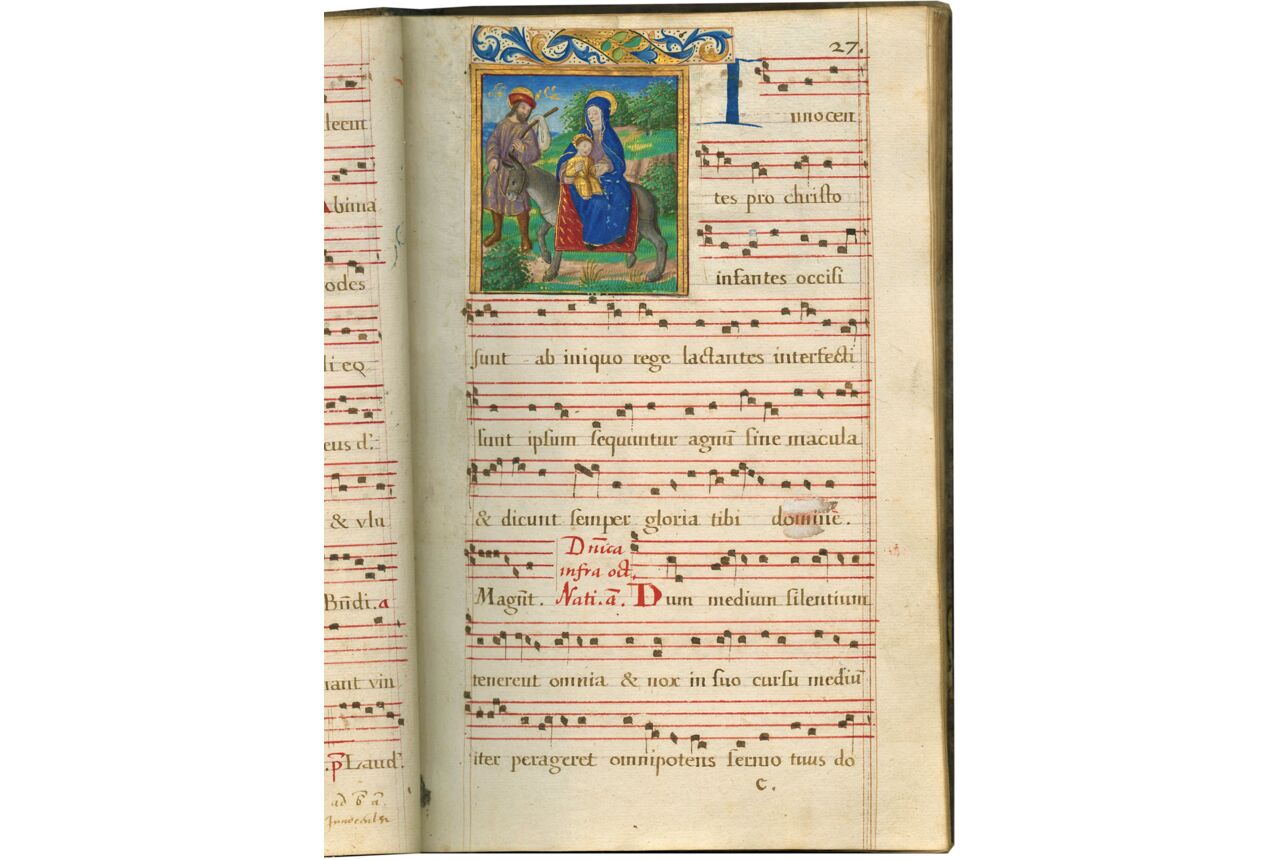 decut
Abima
odes
li eq
eus d':
& vlu
Bn̄di. a
iant vin
.p Laud'
ad b a.
27.
Innocen
tes pro christo
infantes occisi
sunt ab iniquo rege lactantes interfecti
sunt ipsum sequuntur agnū sine macula
& dicunt semper gloria tibi domine.
Dn̄ica
infra oct.
Magn̄t. Nati. ā. Dum medium silentium
tenerent omnia & nox in suo cursu mediū
iter perageret omnipotens sermo tuus do
C.